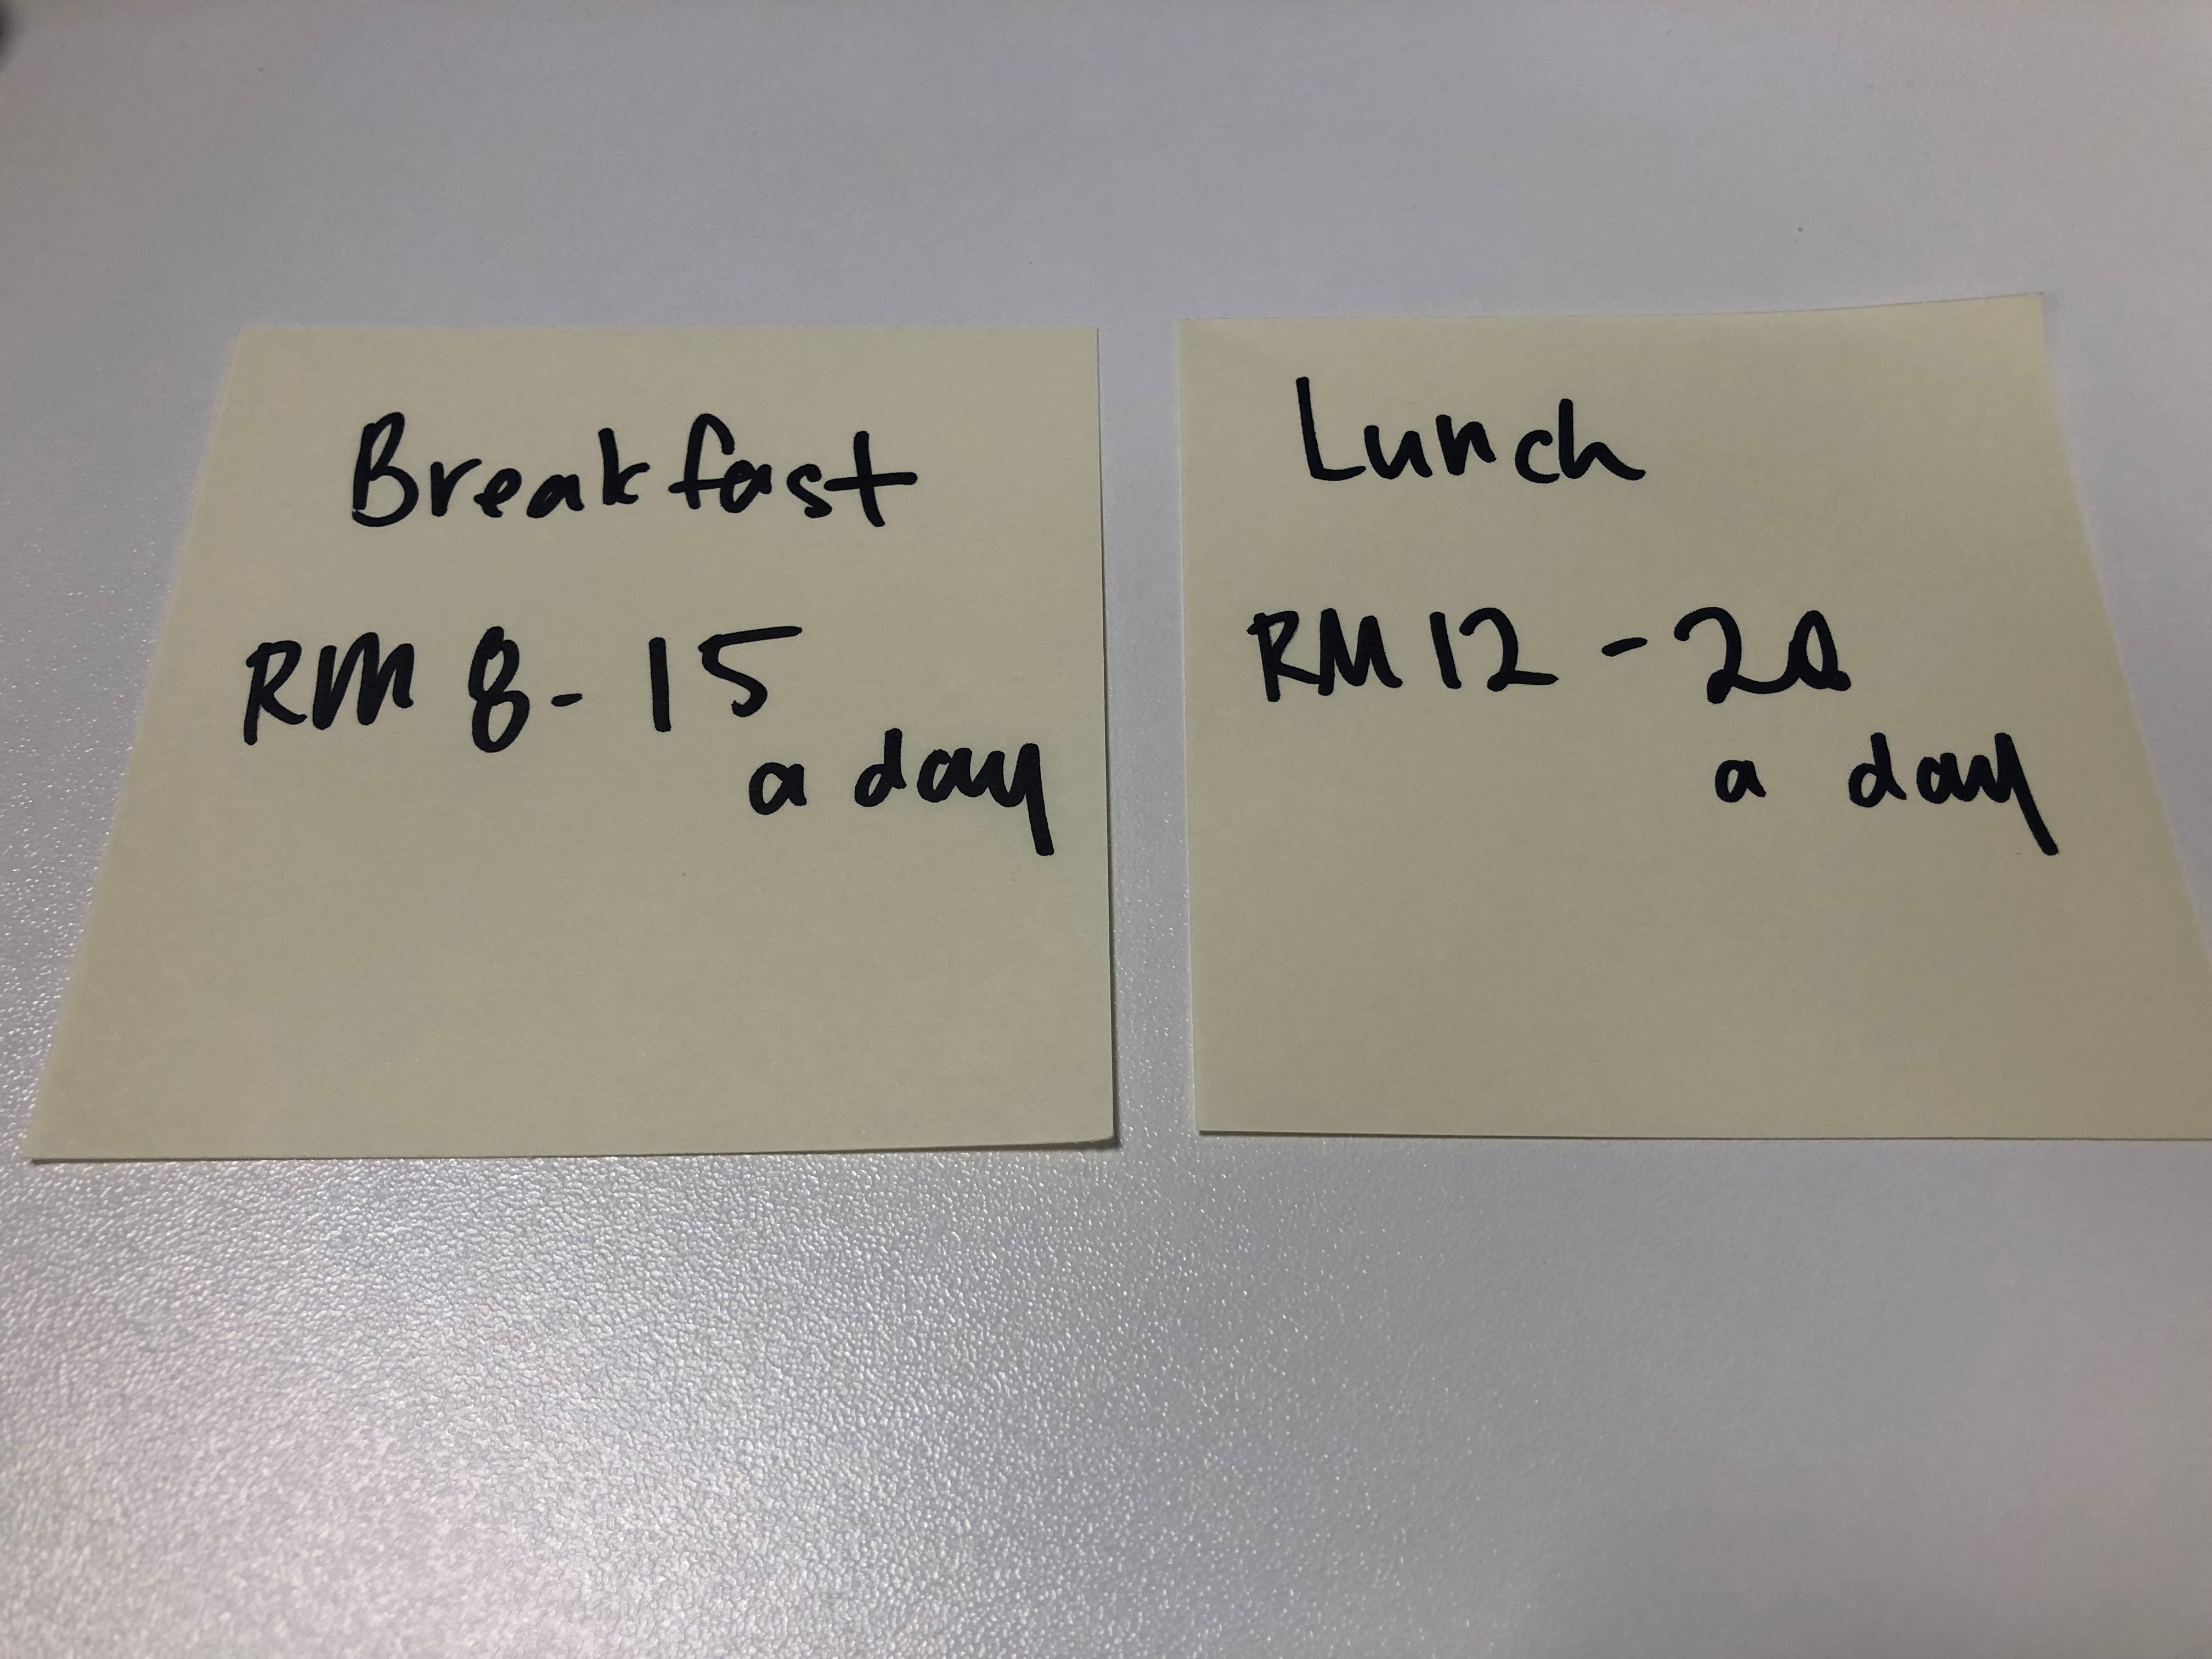 Breakfast
RM 8-15
a day
Lunch
RM 12 - 20
a day